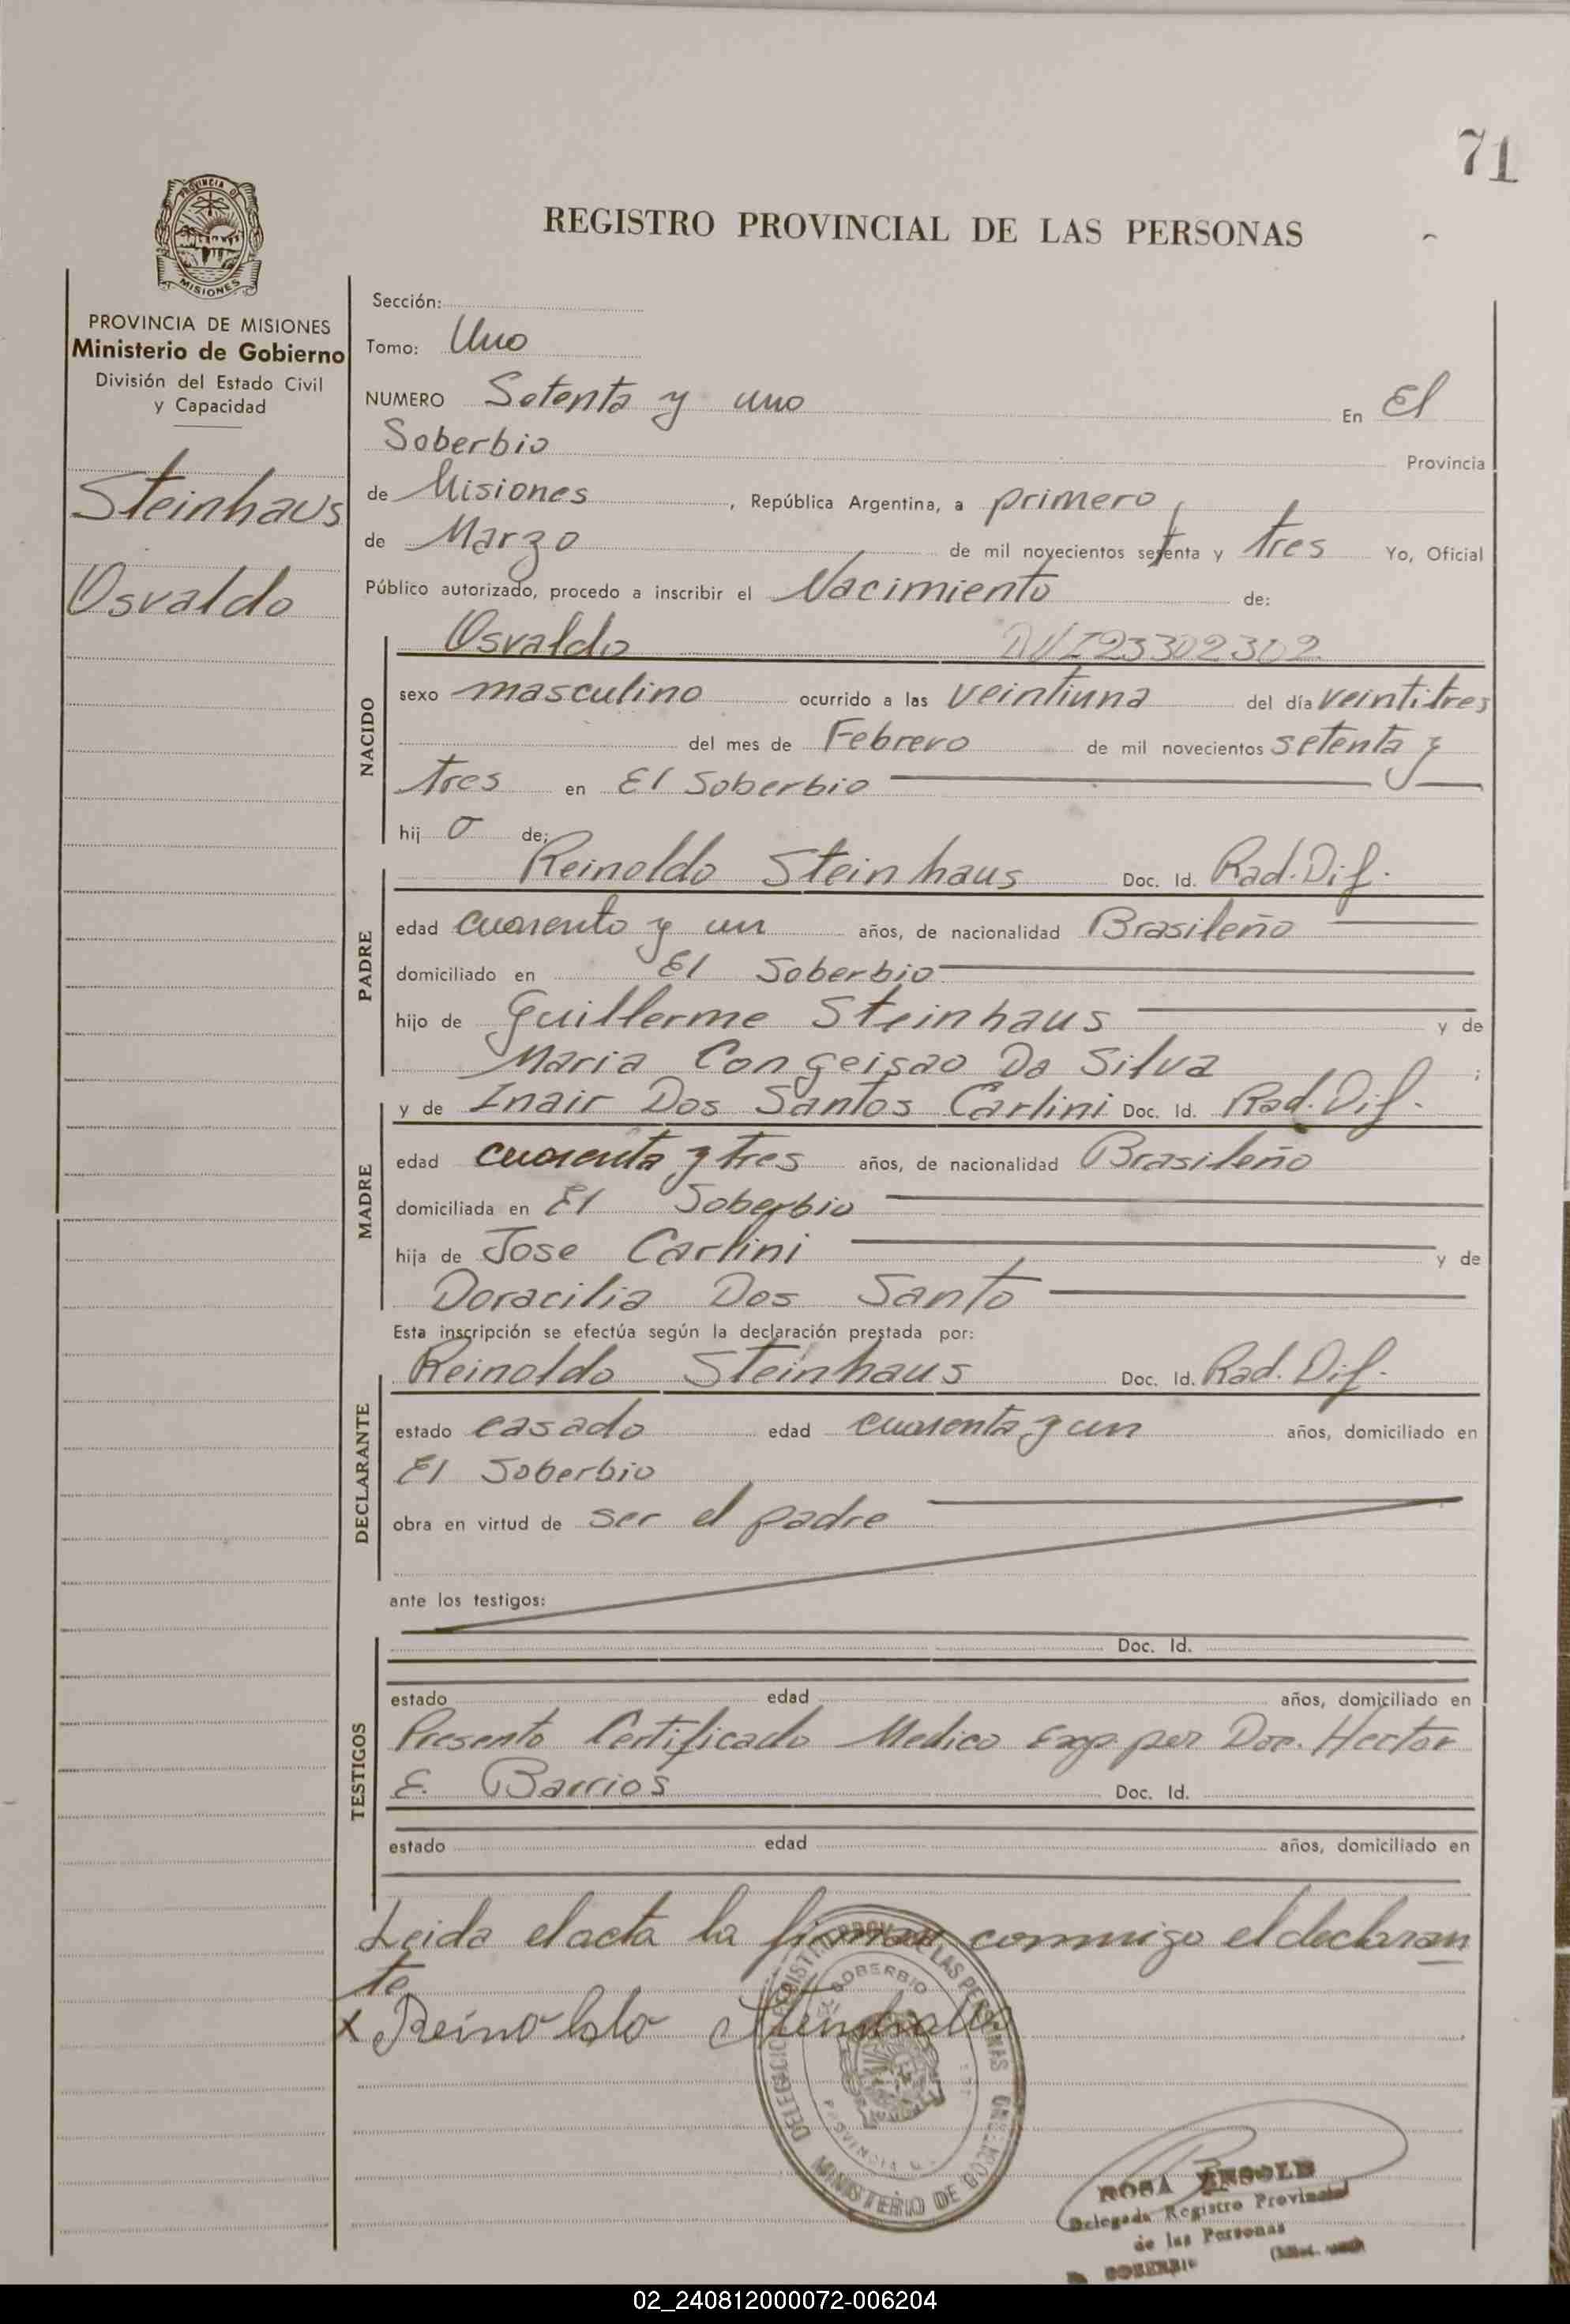 71
PROVINCIA DE
MISIONES
REGISTRO PROVINCIAL DE LAS PERSONAS
PROVINCIA DE MISIONES
Ministerio de Gobierno
División del Estado Civil
y Capacidad
Steinhaus
Osvaldo
Sección:
Tomo: Uno
NUMERO Setenta y uno En El
Soberbio Provincia
de Misiones, República Argentina, a primero
de Marzo de mil novecientos setenta y tres Yo, Oficial
Público autorizado, procedo a inscribir el Nacimiento de:
Osvaldo DNI 23302302
NACIDO
sexo masculino ocurrido a las veintiuna del día veintitres
del mes de Febrero de mil novecientos setenta y
tres en El Soberbio
hij o de:
PADRE
Reinoldo Steinhaus Doc. Id. Rad. Dif.
edad cuarenta y un años, de nacionalidad Brasileño
domiciliado en El Soberbio
hijo de Guillerme Steinhaus y de
Maria Congeisao Da Silva ;
MADRE
y de Inair Dos Santos Carlini Doc. Id. Rad. Dif.
edad cuarenta y tres años, de nacionalidad Brasileño
domiciliada en El Soberbio
hija de Jose Carlini y de
Doracilia Dos Santo
Esta inscripción se efectúa según la declaración prestada por:
DECLARANTE
Reinoldo Steinhaus Doc. Id. Rad. Dif.
estado casado edad cuarenta y un años, domiciliado en
El Soberbio
obra en virtud de ser el padre
ante los testigos:
TESTIGOS
Doc. Id.
estado edad años, domiciliado en
Presento Certificado Medico Exp. por Doc. Hector
E. Barrios Doc. Id.
estado edad años, domiciliado en
Leida el acta la firman conmigo el declaran
te
x Reinoldo Steinhaus
DELEGACION REGISTRO PROV. DE LAS PERSONAS
EL SOBERBIO
PROVINCIA
MINISTERIO DE GOBIERNO
ROSA
Delegada Registro Provincial
de las Personas
SOBERBIO
02_240812000072-006204